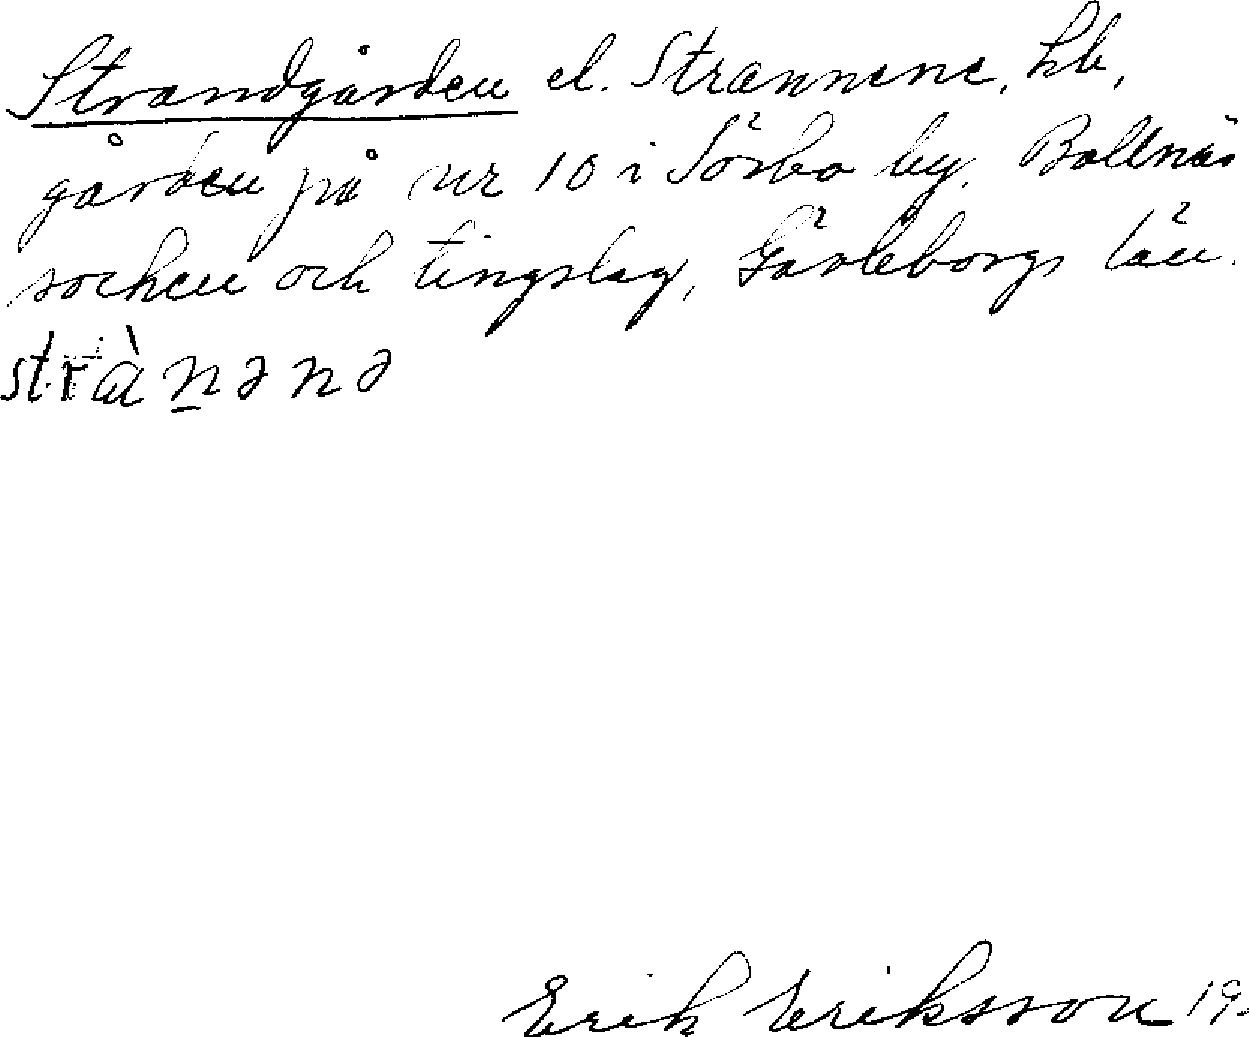 Strandgården el. Strannene, hb,
gården på nr 10 i Sörbo by. Bollnäs
socken och tingslag, Gävleborgs län.
stràn̲ənə
Erik Eriksson 19